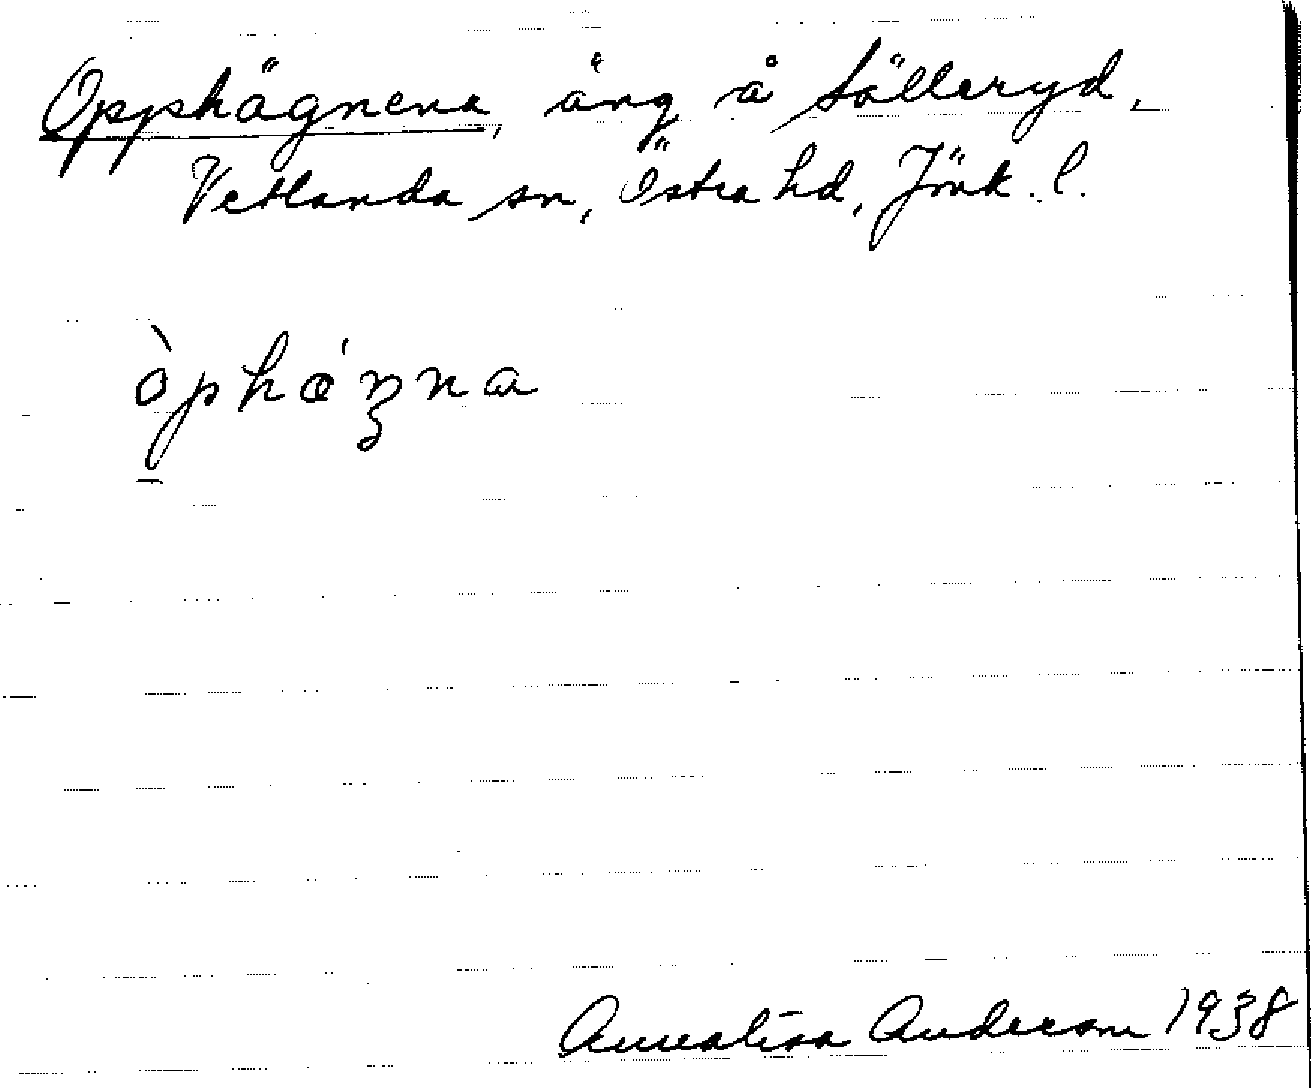 Opphägnena, äng å Sälleryd,
Vetlanda sn, Östra hd, Jönk. l.
òphǽŋna
Annalisa Anderson 1938